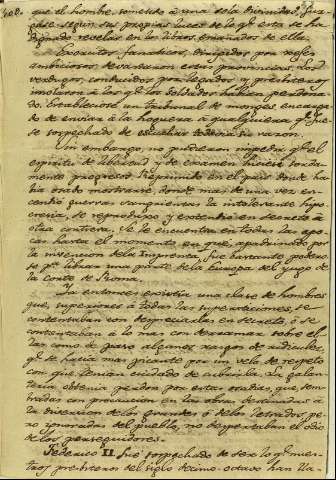 que el hombre, sometido à una de la divinidad, juz-
gase segun sus propias luces de lo q.e esta se ha
dignado revelar en los libros emanados de ella.
Exercitos fanaticos, dirigidos por xefes
ambiciosos devastaron estas provincias. Los
verdugos, conducidos por legados y presbiteros
inmolaron à los q.e los soldados habian perdona-
do. Establecióse un tribunal de monges encarga-
do de enviar à la hoguera à qualquiera q.e fue-
se sospechado de escuchar todavia su razon.
Sin embargo, no pudieron impedir q.e el
espiritu de libertad y de examen hiciese sorda-
mente progresos. Reprimido en el pais donde ha-
bia osado mostrarse, donde mas de una vez en-
cendió guerras sangrientas la intolerante hipo-
cresia, se reprodujo y extendió en secreto à
otra contrera. Se le encuentra en todas las epo-
cas hasta el momento en que, apadrinado por
la invencion de la Imprenta, fue bastante podero-
so p.a librar una parte de la Europa del yugo de
la Corte de Roma.
Ya entonces existia una clase de hombres
que, superiores à todas las supersticiones, se
contentaban con despreciarlas en secreto, ó se
contentaban à lo mas con derramar sobre el-
las como de paso algunos rasgos de ridiculo,
q.e se hacia mas picante por un velo de respeto
con que tenian cuidado de cubrirlo. La galan-
teria obtenia perdon por estas osadias, que sem-
bradas con precaucion en las obras destinadas à
la diversion de los grandes ó de los letrados, pe-
ro ignoradas del pueblo, no despertaban el odio
de los perseguidores.
Federico II fué sospechado de ser lo q.e nues-
tros presbiteros del siglo decimo-octavo han lla-